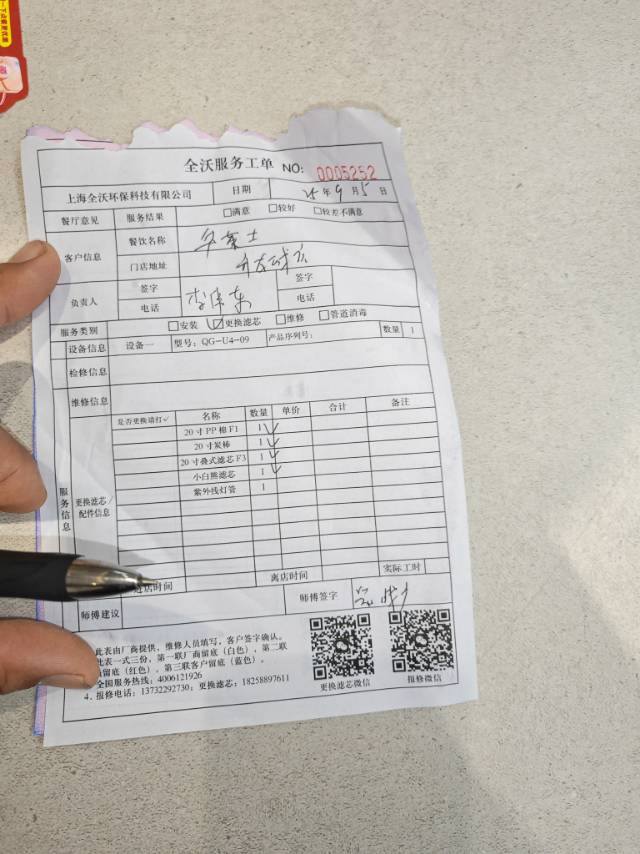 全沃服务工单 NO: 0005252
上海全沃环保科技有限公司 日期 25年9月5日
餐厅意见 服务结果 □满意 □较好 □较差不满意
客户信息 餐饮名称
门店地址
负责人 签字 签字
电话 电话
服务类别 □安装 ☑更换滤芯 □维修 □管道消毒
设备信息 设备一 型号：QG-U4-09 产品序列号： 数量 1
检修信息
维修信息
服务信息 更换滤芯/配件信息 是否更换请打✓ 名称 数量 单价 合计 备注
20寸PP棉F1 1 ✓
20寸炭棒 1 ✓
20寸叠式滤芯F3 1 ✓
小白熊滤芯 1 ✓
紫外线灯管 1
进店时间 离店时间 实际工时
师傅建议 师傅签字
此表由厂商提供，维修人员填写，客户签字确认。
此表一式三份，第一联厂商留底（白色），第二联
留底（红色），第三联客户留底（蓝色）。
全国服务热线：4006121926
4、报修电话：13732292730；更换滤芯：18258897611
更换滤芯微信 报修微信